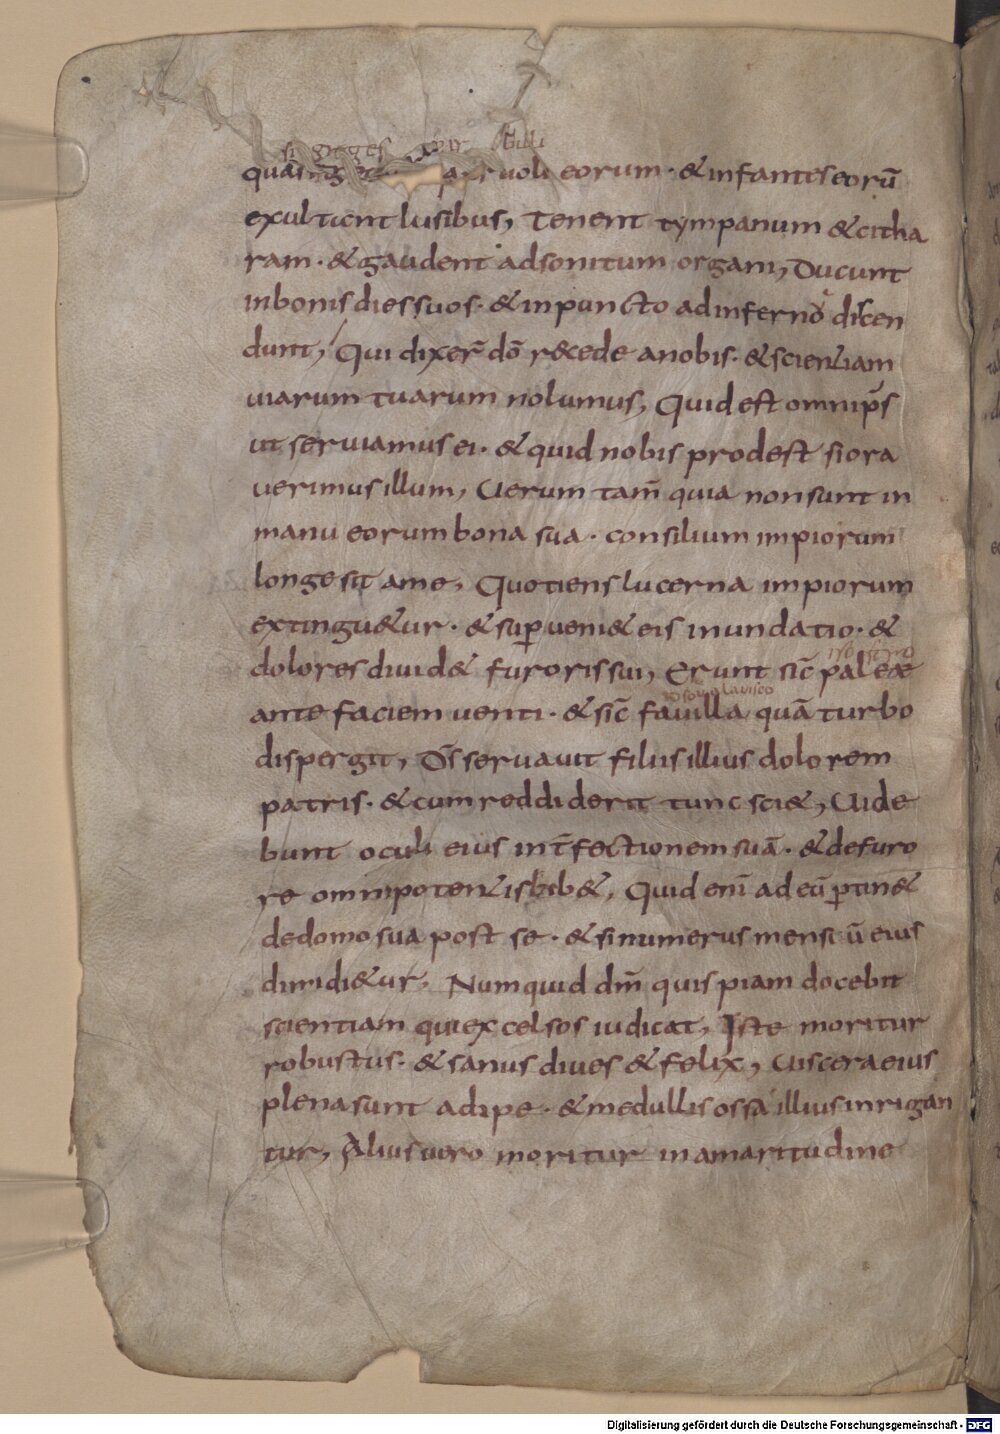 quasi greges paruoli eorum · & infantes eorū
exultant lusibus, Tenent tympanum & citha
ram · & gaudent adsonitum organi, Ducunt
inbonis dies suos · & inpuncto ad inferna discen
dunt, Qui dixer̄ dō recede anobis · & scientiam
uiarum tuarum nolumus, Quid est omnip̄s
ut seruiamus ei · & quid nobis prodest si ora
uerimus illum, Uerum tam̄ quia non sunt in
manu eorum bona sua · consilium impiorum
longe sit ame, Quotiens lucerna impiorum
extingu&ur · & sup̱ueni& eis inundatio · &
dolores diuid& furoris sui, Erunt sic̄ paleae
ante faciem uenti · & sic̄ fauilla quā turbo
dispergit, D̄s seruauit filiis illius dolorem
patris · & cum reddiderit tunc sci&, Uide
bunt oculi eius int̄fectionem suā · & defuro
re omnipotentis bib&, Quid enī ad eū p̱tin&
dedomo sua post se · & si numerus mensiū eius
dimidi&ur, Numquid dm̄ quispiam docebit
scientiam qui excelsos iudicat, Iste moritur
robustus · & sanus diues & felix, Uiscera eius
plena sunt adipe · & medullis ossa illius inrigan
tur, Alius uero moritur in amaritudine
Digitalisierung gefördert durch die Deutsche Forschungsgemeinschaft - DFG